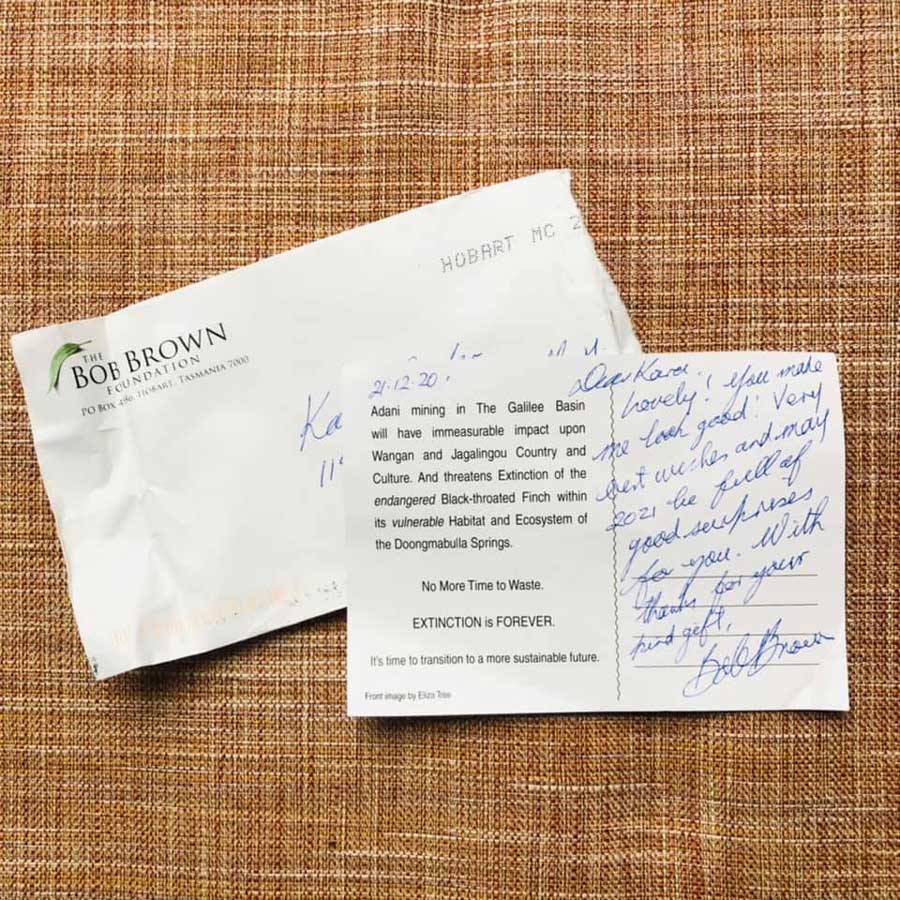 HOBART MC 2
THE
BOB BROWN
FOUNDATION
PO BOX 496, HOBART, TASMANIA 7000
Ka
21.12.20
Adani mining in The Galilee Basin
will have immeasurable impact upon
Wangan and Jagalingou Country and
Culture. And threatens Extinction of the
endangered Black-throated Finch within
its vulnerable Habitat and Ecosystem of
the Doongmabulla Springs.
No More Time to Waste.
EXTINCTION is FOREVER.
It's time to transition to a more sustainable future.
Front image by Eliza Tree
Dear Kara,
Lovely! You make
me look good! Very
best wishes and may
2021 be full of
good surprises
for you. With
thanks for your
kind gift,
Bob Brown